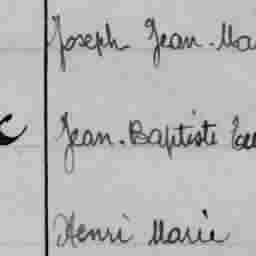 Joseph Jean-Ma
Jean-Baptiste
Henri Marie